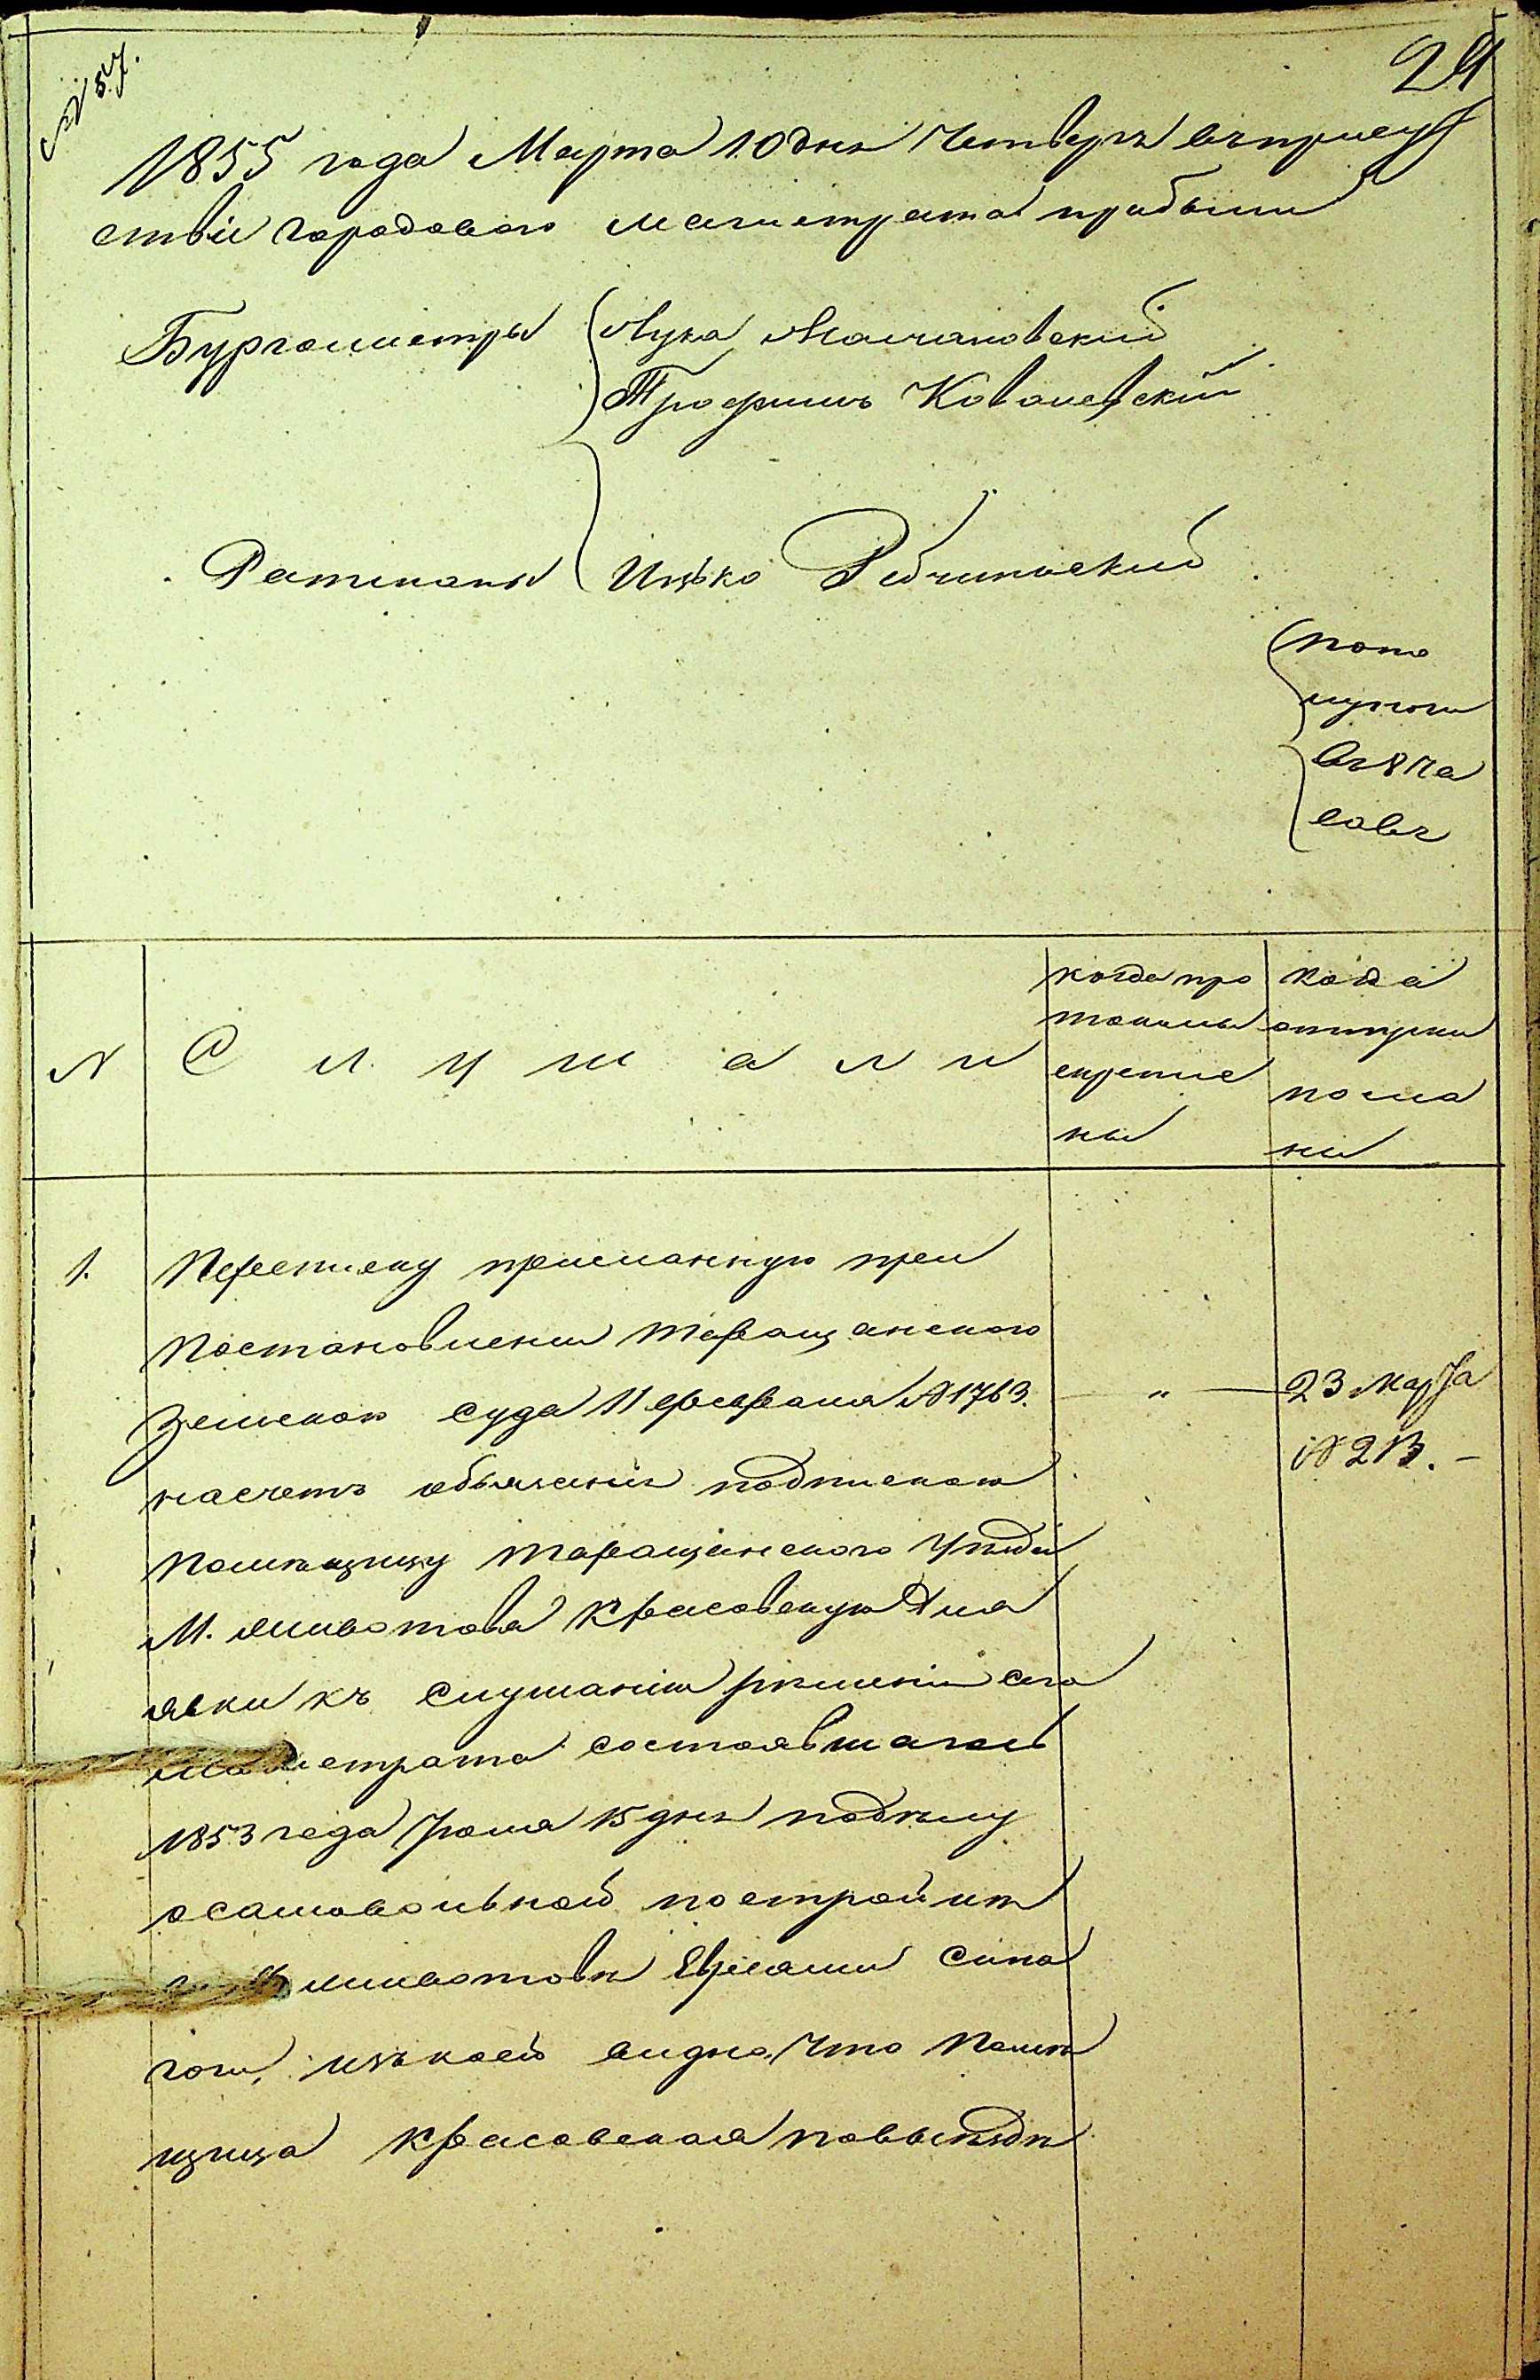 № 57.
24
1855 года Марта 10 дня Четвергъ въ присут
ствіи городоваго магистрата прибыли
Бургомистры
Лука Молчановский
Трофимъ Ковалевскій
Ратманы
Ицько Рабчинский
попо
луночи
въ 8 ча
совъ
N
С л у ш а л и
когда про
токолы
скрепле
ны
когда
отпуски
посла
ны
1.
Переписку присланную при
постановлении Таращанского
Земского суда 11 февраля № 1763.
"
23 Марта
№ 213.
насчетъ обьявления подпискою
помѣщицу Таращанского Уѣзда
М. Животова Красовскую для
явки къ слушанию рѣшенія сего
магистрата состоявшагось
1853 года Іюля 15 дня по дѣлу
осамовольной постройки
Животовѣ Евреями Сина
гоги, изъ коей видно, Что Помѣ
щица Красовская по выѣздѣ